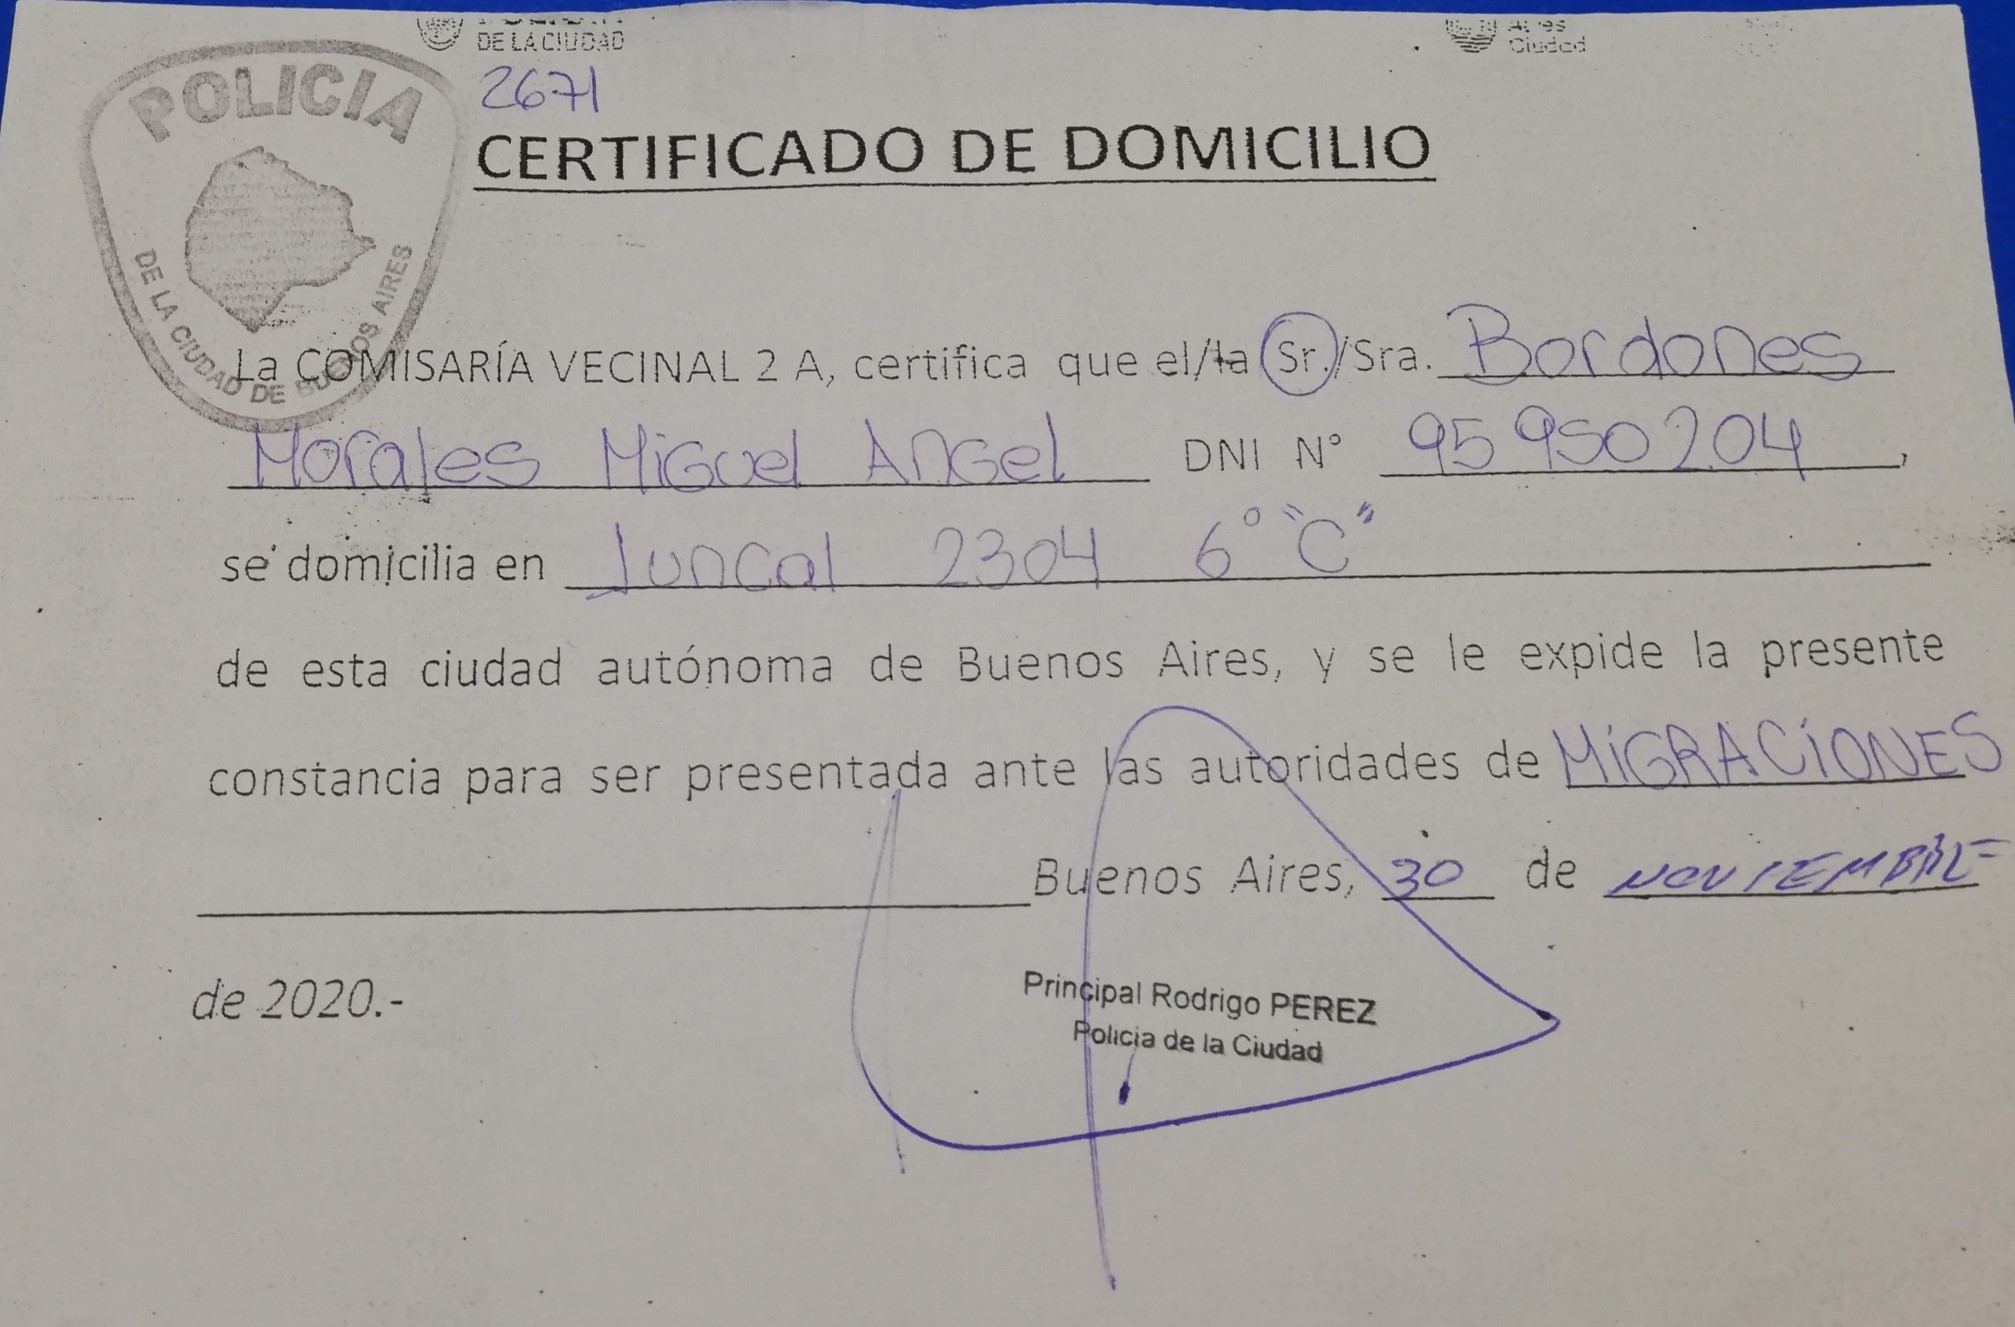 DE LA CIUDAD
Aires
Ciudad
2671
CERTIFICADO DE DOMICILIO
POLICIA
DE LA CIUDAD DE BUENOS AIRES
La COMISARÍA VECINAL 2 A, certifica que el/la Sr./Sra. Bordones
Morales Miguel Angel DNI N° 95 950 204,
se domicilia en Juncal 2304 6° "C"
de esta ciudad autónoma de Buenos Aires, y se le expide la presente
constancia para ser presentada ante las autoridades de MIGRACIONES
Buenos Aires, 30 de NOVIEMBRE
de 2020.-
Principal Rodrigo PEREZ
Policia de la Ciudad